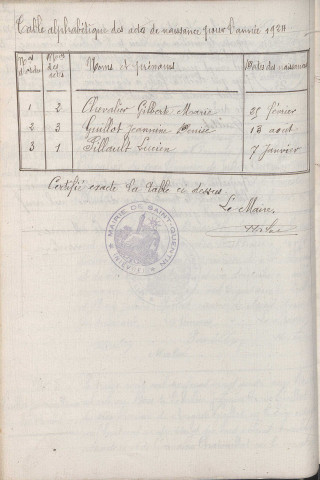 Table alphabétique des actes de naissance pour l'année 19
Nos d'ordre Nos des actes Noms et prénoms Dates des naissances
1 2 Chevalier Gilbert Marie 25 février
2 3 Guillot Jeannine Denise 18 août
3 1 Pillault Lucien 7 Janvier
Certifié exacte la table ci dessus
Le Maire,
MAIRIE DE SAINT-QUENTIN